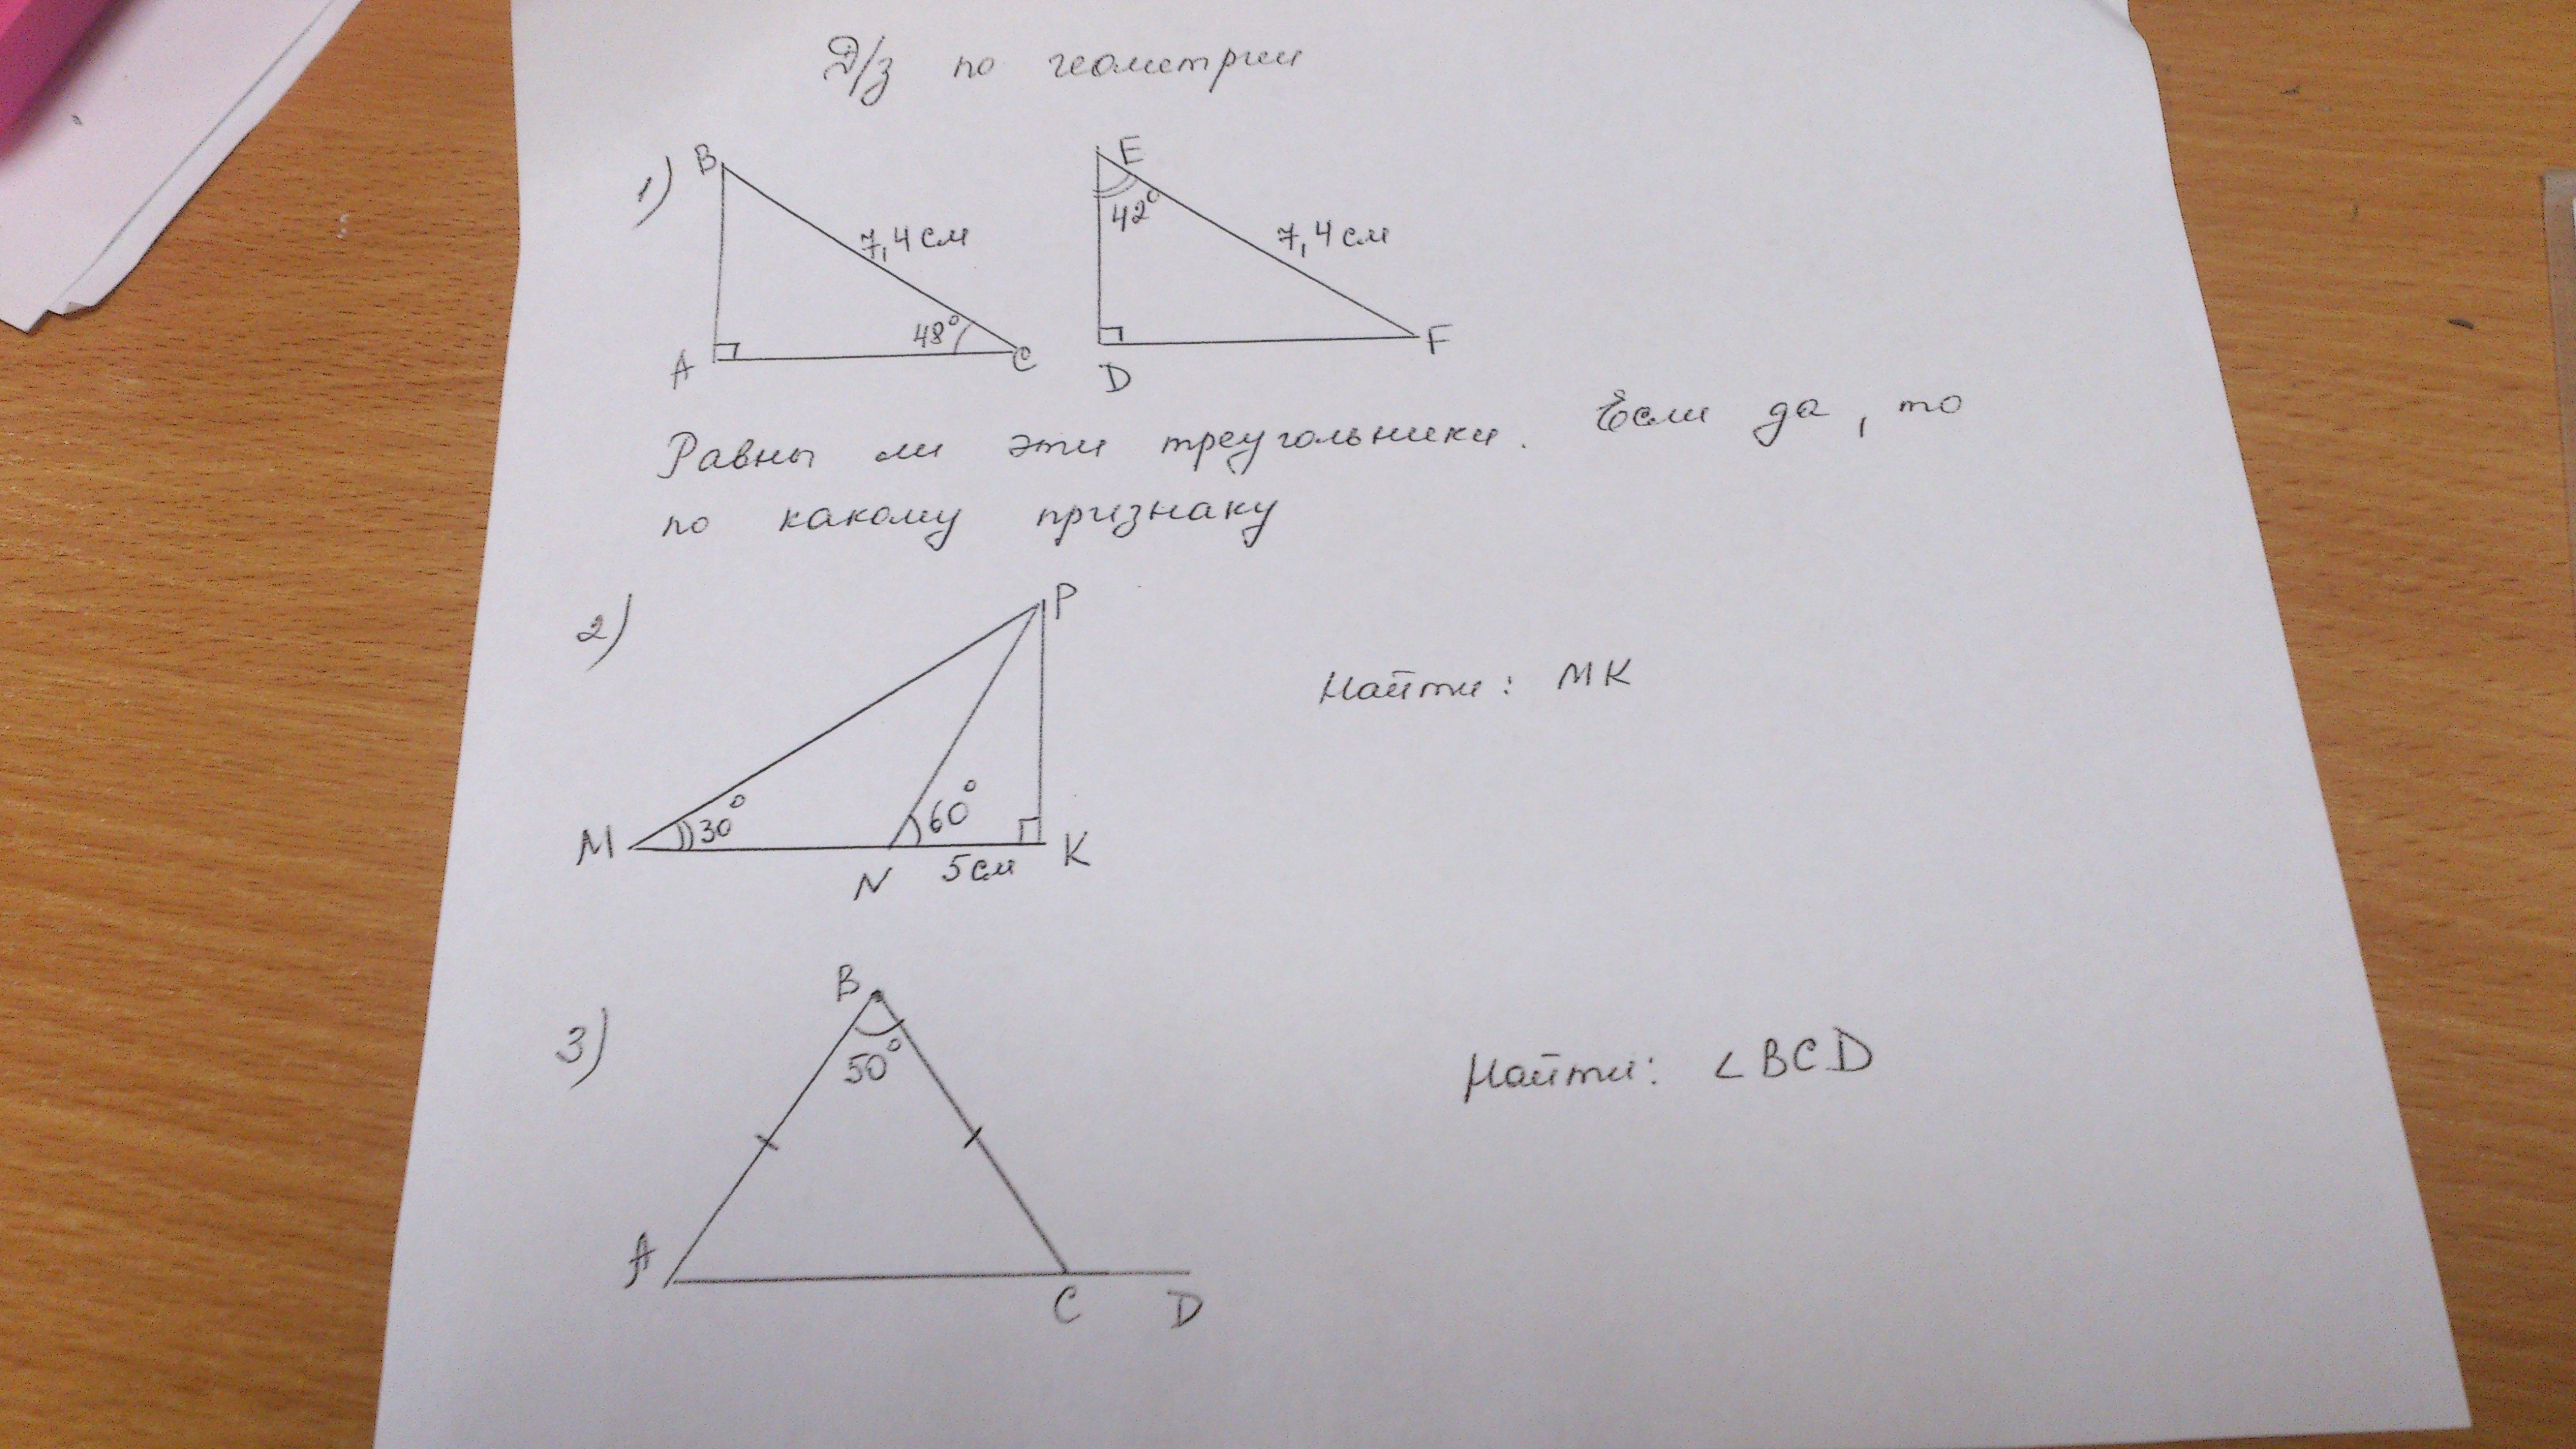 Д/з по геометрии
1) B E
42°
7,4 см 7,4 см
48°
A C D F
Равны ли эти треугольники. Если да, то
по какому признаку
2) P
Найти: MK
M 30° 60° K
N 5 см
B
3) 50° Найти: ∠BCD
A C D